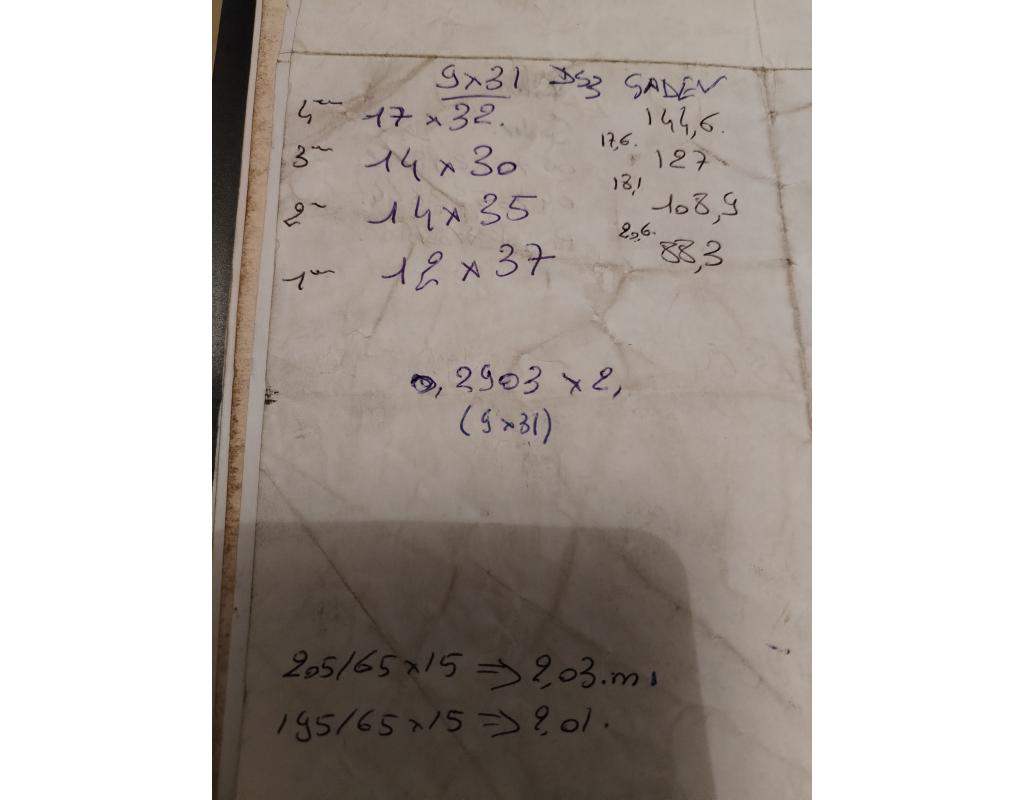 9x31 DS3 SADEV
4ᵐ 17 x 32. 144,6.
17,6.
3ᵐ 14 x 30 127
18,1
2ᵐ 14 x 35 108,9
20,6.
1ᵐ 12 x 37 88,3
0,2903 x 2,
(9x31)
205/65x15 => 2,03.m.
195/65x15 => 2,01.